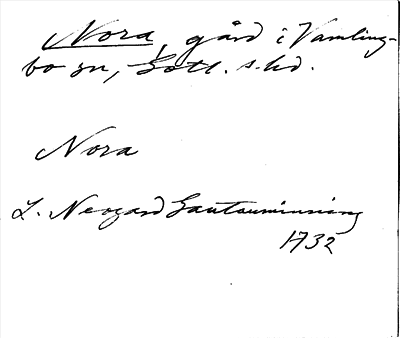 Nora, gård i Vamling-
bo sn, Gotl. s. hd.
Nora
L. Neogard Gautauminning
1732